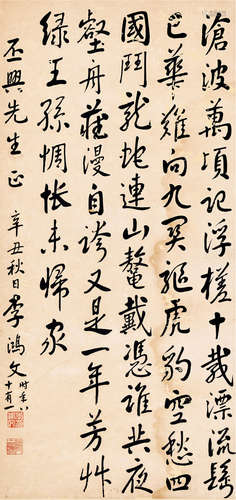 滄波萬頃記浮槎十載漂流鬢
已華難向九關驅虎豹空愁四
國鬥龍蛇連山鼇戴憑誰共夜
壑舟藏漫自誇又是一年芳艸
綠王孫惆悵未歸家
丕興先生正
辛丑秋日李鴻文
時年八十有